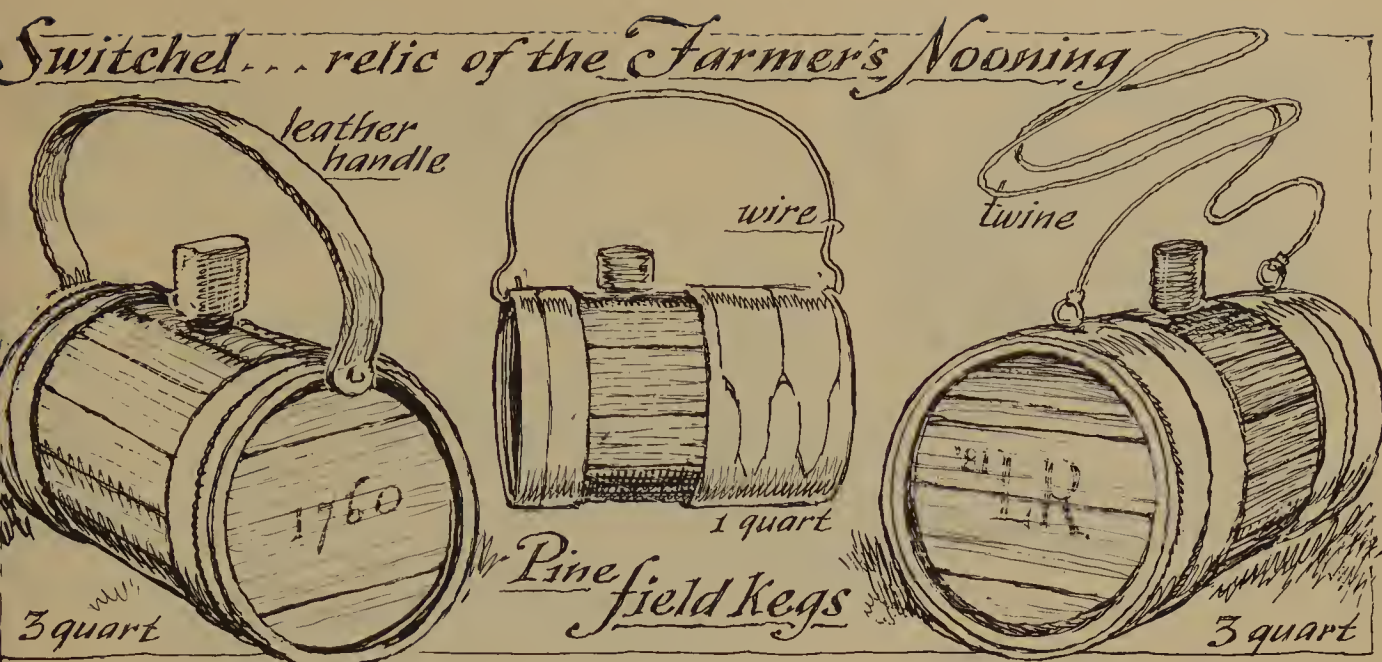 Switchel... relic of the Farmer's Nooning
leather
handle
wire
twine
1760
1 quart
Pine
field kegs
3 quart
3 quart